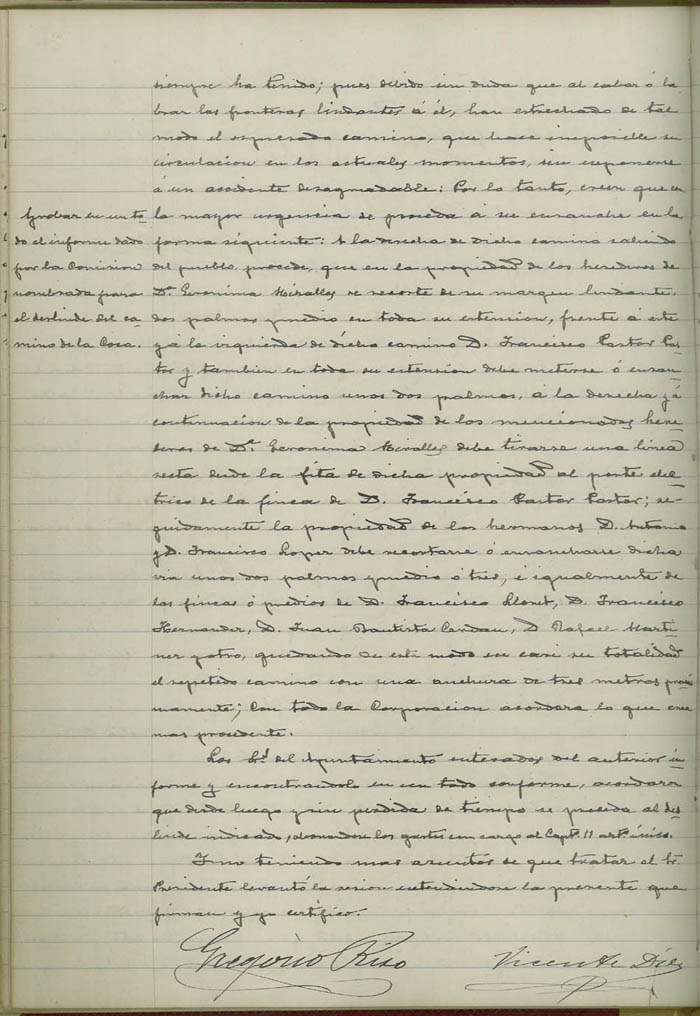 siempre ha tenido; pues debido sin duda que al cabar ó la
brar las fronteras lindantes á él, han estrechado de tal
modo el espresado camino, que hace imposible su
circulacion en los actuales momentos, sin esponerse
á un accidente desagradable: Por lo tanto, creen que en
la mayor urgencia se proceda á su ensanche en la
forma siguiente: A la derecha de dicho camino saliendo
del pueblo, procede, que en la propiedad de los herederos de
Dª. Geronima Miralles se recorte de su margen lindante,
dos palmos y medio en toda su estension, frente á este
y á la izquierda de dicho camino D. Francisco Pastor Pas-
tor y tambien en toda su estension debe meterse ó ensan-
char dicho camino unos dos palmos, á la derecha y á
continuacion de la propiedad de los mencionados here-
deros de Dª. Geronima Miralles debe tirarse una linea
recta desde la fita de dicha propiedad al poste eléc-
trico de la finca de D. Francisco Pastor Pastor; se-
guidamente la propiedad de los hermanos D. Antonio
y D. Francisco Lopez debe recortarse ó ensancharse dicha
via unos dos palmos y medio ó tres, é igualmente de
las fincas ó predios de D. Francisco Lloret, D. Francisco
Hernandez, D. Juan Bautista Candau, D Rafael Marti-
nez y otro, quedando de este modo en casi su totalidad
el repetido camino con una anchura de tres metros proxi
mamente; Con todo la Corporacion acordara lo que crea
mas procedente.
Los Srs. del Ayuntamiento enterados del anterior in-
forme y encontrandolo en un todo conforme, acordaron
que desde luego y sin perdida de tiempo se proceda al des-
linde indicado, abonandose los gastos con cargo al Capº. 11 artº. único.
Y no teniendo mas asuntos de que tratar el Sr.
Presidente levantó la sesion estendiendose la presente que
firman y yo certifico.
Aprobar en un to-
do el informe dado
por la Comision
nombrada para
el deslinde del ca-
mino de la Coca.
Gregorio Riso
Vicente Diez